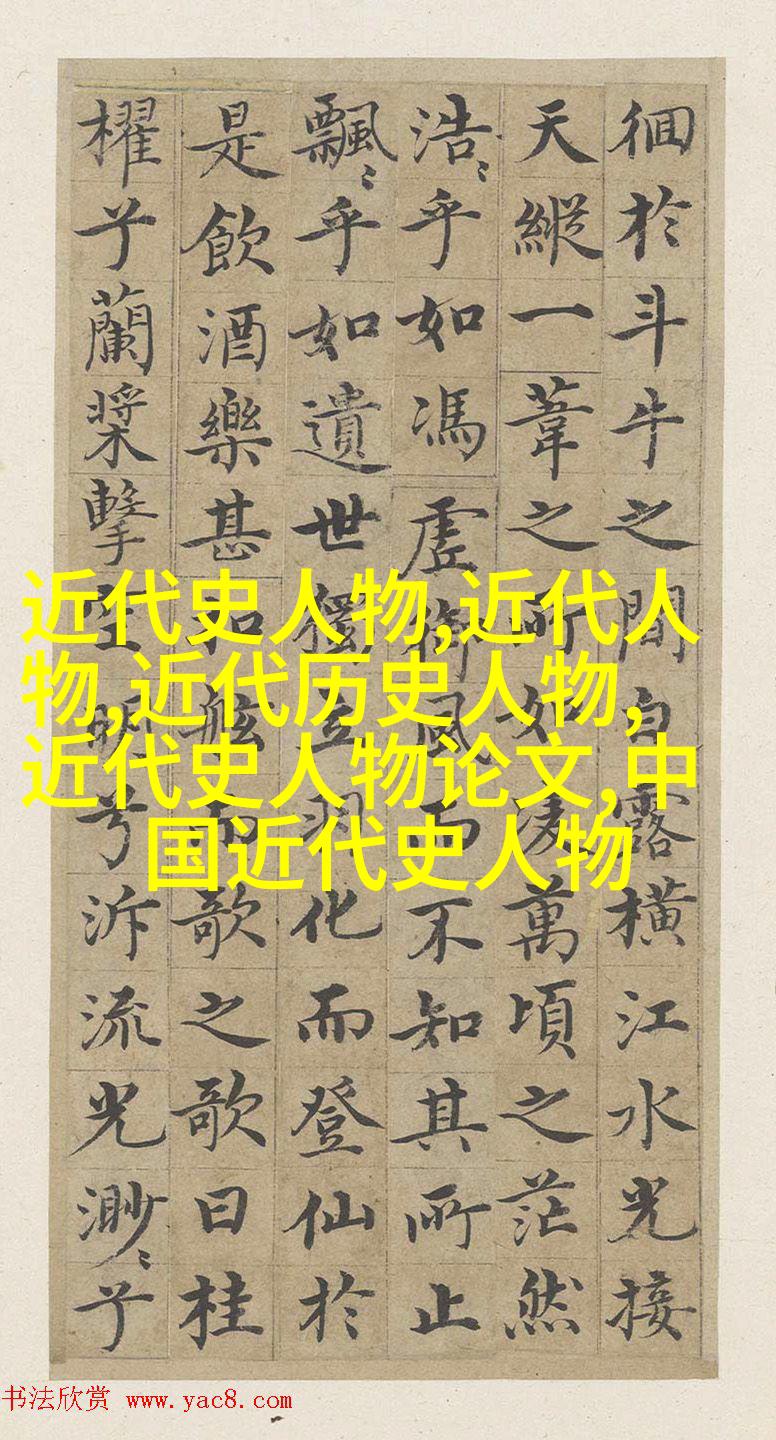 徊於斗牛之間白露橫江水光接
天縱一葦之所如凌萬頃之茫然
浩〻乎如馮虛御風而不知其所止
飄〻乎如遺世獨立羽化而登仙於
是飲酒樂甚扣舷而歌之歌曰桂
櫂兮蘭槳擊空明兮泝流光渺〻兮
近代史人物,近代人
物,近代历史人物,
近代史人物论文,中
国近代史人物
书法欣赏 www.yac8.com